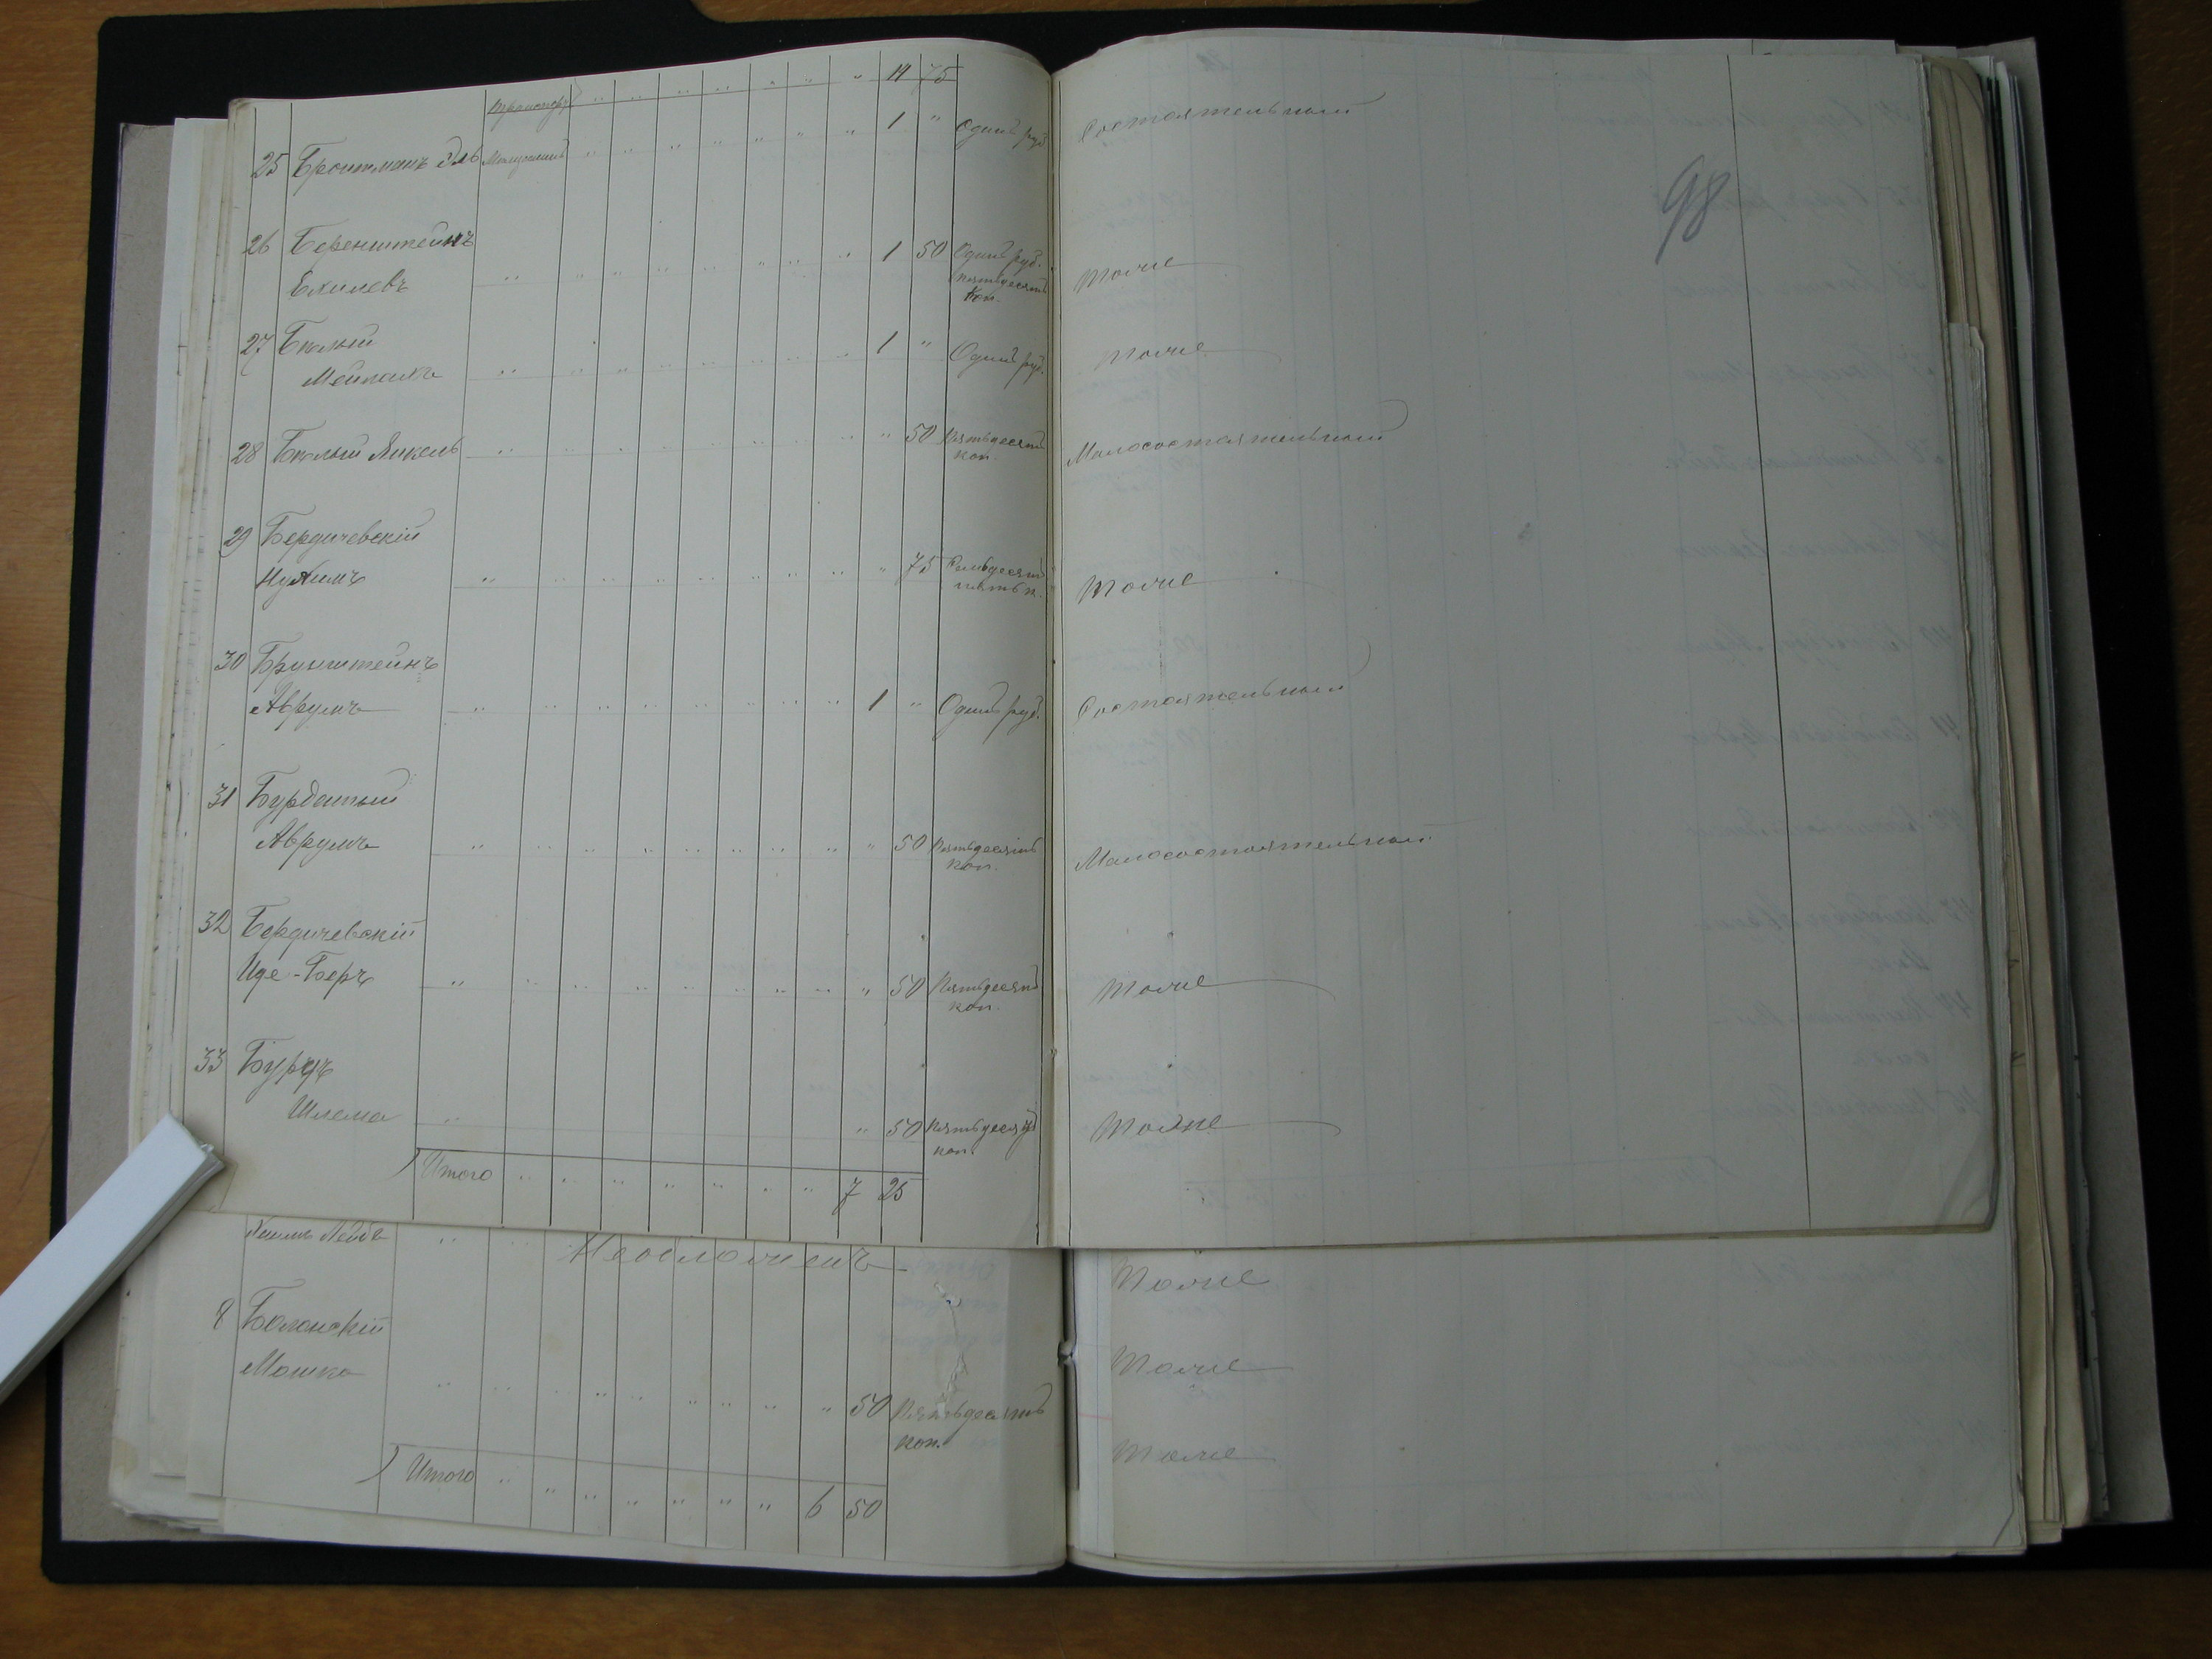 Транспортъ " " " " " " " 14 75
25 Бройтманъ Эль " " " " " " " 1 " Одинъ руб. Состоятельный
98
26 Беренштейнъ
Ехилевъ " " " " " " " " 1 50 Одинъ руб. пятьдесятъ коп. Тоже
27 Бѣлый
Мейлахъ " " " " " " " " 1 " Одинъ руб. Тоже
28 Бѣлый Янкель " " " " " " " " " 50 Пятьдесятъ коп. Малосостоятельный
29 Бердичевскій
Нухимъ " " " " " " " " " 75 Семьдесятъ пять к. Тоже
30 Брунштейнъ
Аврумъ " " " " " " " " 1 " Одинъ руб. Состоятельный
31 Бурдатый
Аврумъ " " " " " " " " " 50 Пятьдесятъ коп. Малосостоятельный
32 Бердичевскій
Иде-Беръ " " " " " " " " " 50 Пятьдесятъ коп. Тоже
33 Бурдъ
Шлема " " 50 Пятьдесятъ коп. Тоже
Итого " " " " " " " 7 25
Хаимъ Лейба " " Необложенъ Тоже
8 Боланскій Тоже
Мошко " " " " " " " " " 50 Пятьдесятъ коп. Тоже
Итого " " " " " " " 6 50